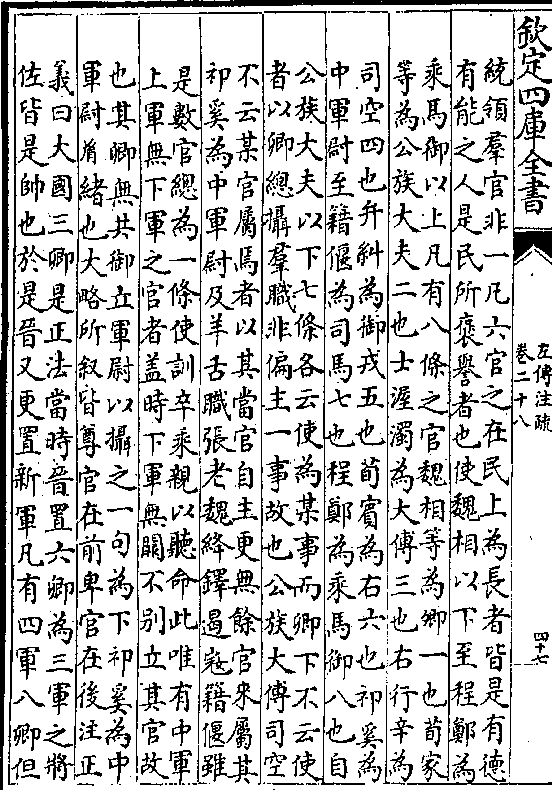 欽定四庫全書
左傳注疏
卷二十八
四十七
統領羣官非一凡六官之在民上為長者皆是有德
有能之人是民所褒譽者也使魏相以下至程鄭為
乘馬御以上凡有八條之官魏相等為卿一也荀家
等為公族大夫二也士渥濁為大傅三也右行辛為
司空四也弁糾為御戎五也荀賓為右六也祁奚為
中軍尉至籍偃為司馬七也程鄭為乘馬御八也自
公族大夫以下七條各云使為某事而卿下不云使
者以卿總攝羣職非偏主一事故也公族大傅司空
不云某官屬焉者以其當官自主更無餘官來屬其
祁奚為中軍尉及羊舌職張老魏絳鐸遏寇籍偃雖
是數官總為一條使訓卒乘親以聽命此唯有中軍
上軍無下軍之官者蓋時下軍無闕不別立其官故
也其卿無共御立軍尉以攝之一句為下祁奚為中
軍尉肩緒也大略所敘皆尊官在前卑官在後注正
義曰大國三卿是正法當時晉置六卿為三軍之將
佐皆是帥也於是晉又更置新軍凡有四軍八卿但